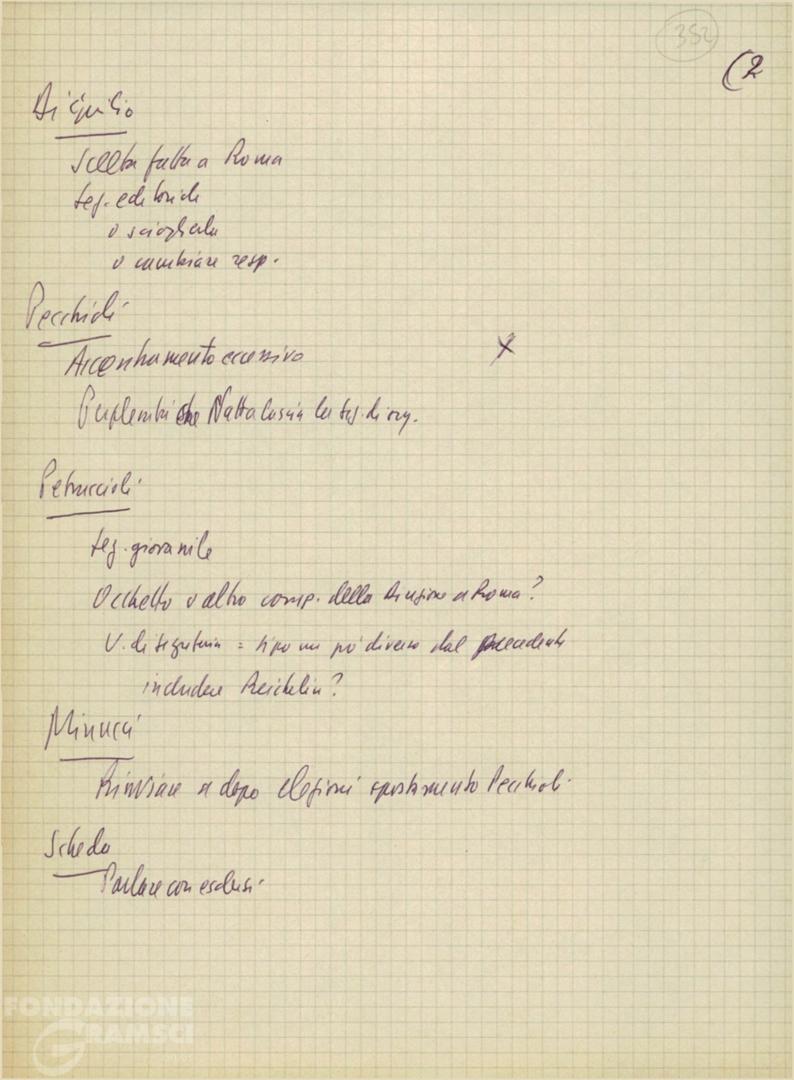 352
(2
Di Giulio
Scelta fatta a Roma
Sez. editoriale
o scioglierla
o cambiare resp.
Pecchioli
Accentramento eccessivo
x
Perplessità che Natta lascia la sez. di org.
Petruccioli
Sez. giovanile
Occhetto o altro comp. della Direzione a Roma?
U. di segreteria = tipo un po' diverso dal precedente
includere Reichlin?
Minucci
Rinviare a dopo elezioni spostamento Pecchioli
Scheda
Parlare con esclusi
FONDAZIONE
GRAMSCI